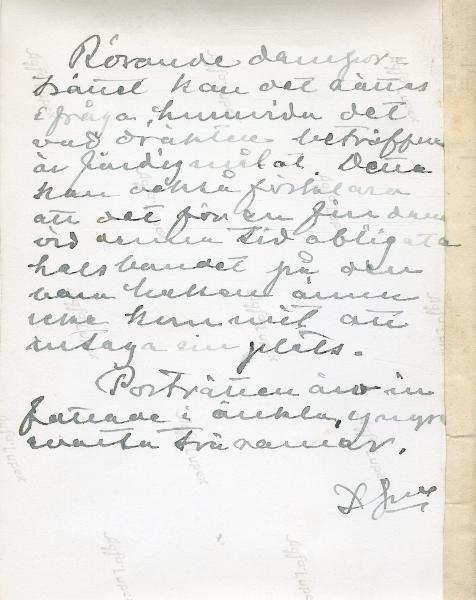 Rörande dampor-
trättet kan det sättas
i fråga, huruvida det
vad dräkten beträffar
är färdigmålat. Detta
kan också förklara
att det för en fin dam
vid denna tid obligata
halsbandet på den
bara halsen ännu
icke kommit att
intaga sin plats.
Porträtten äro in-
fattade i enkla, yngre
svarta träramar.